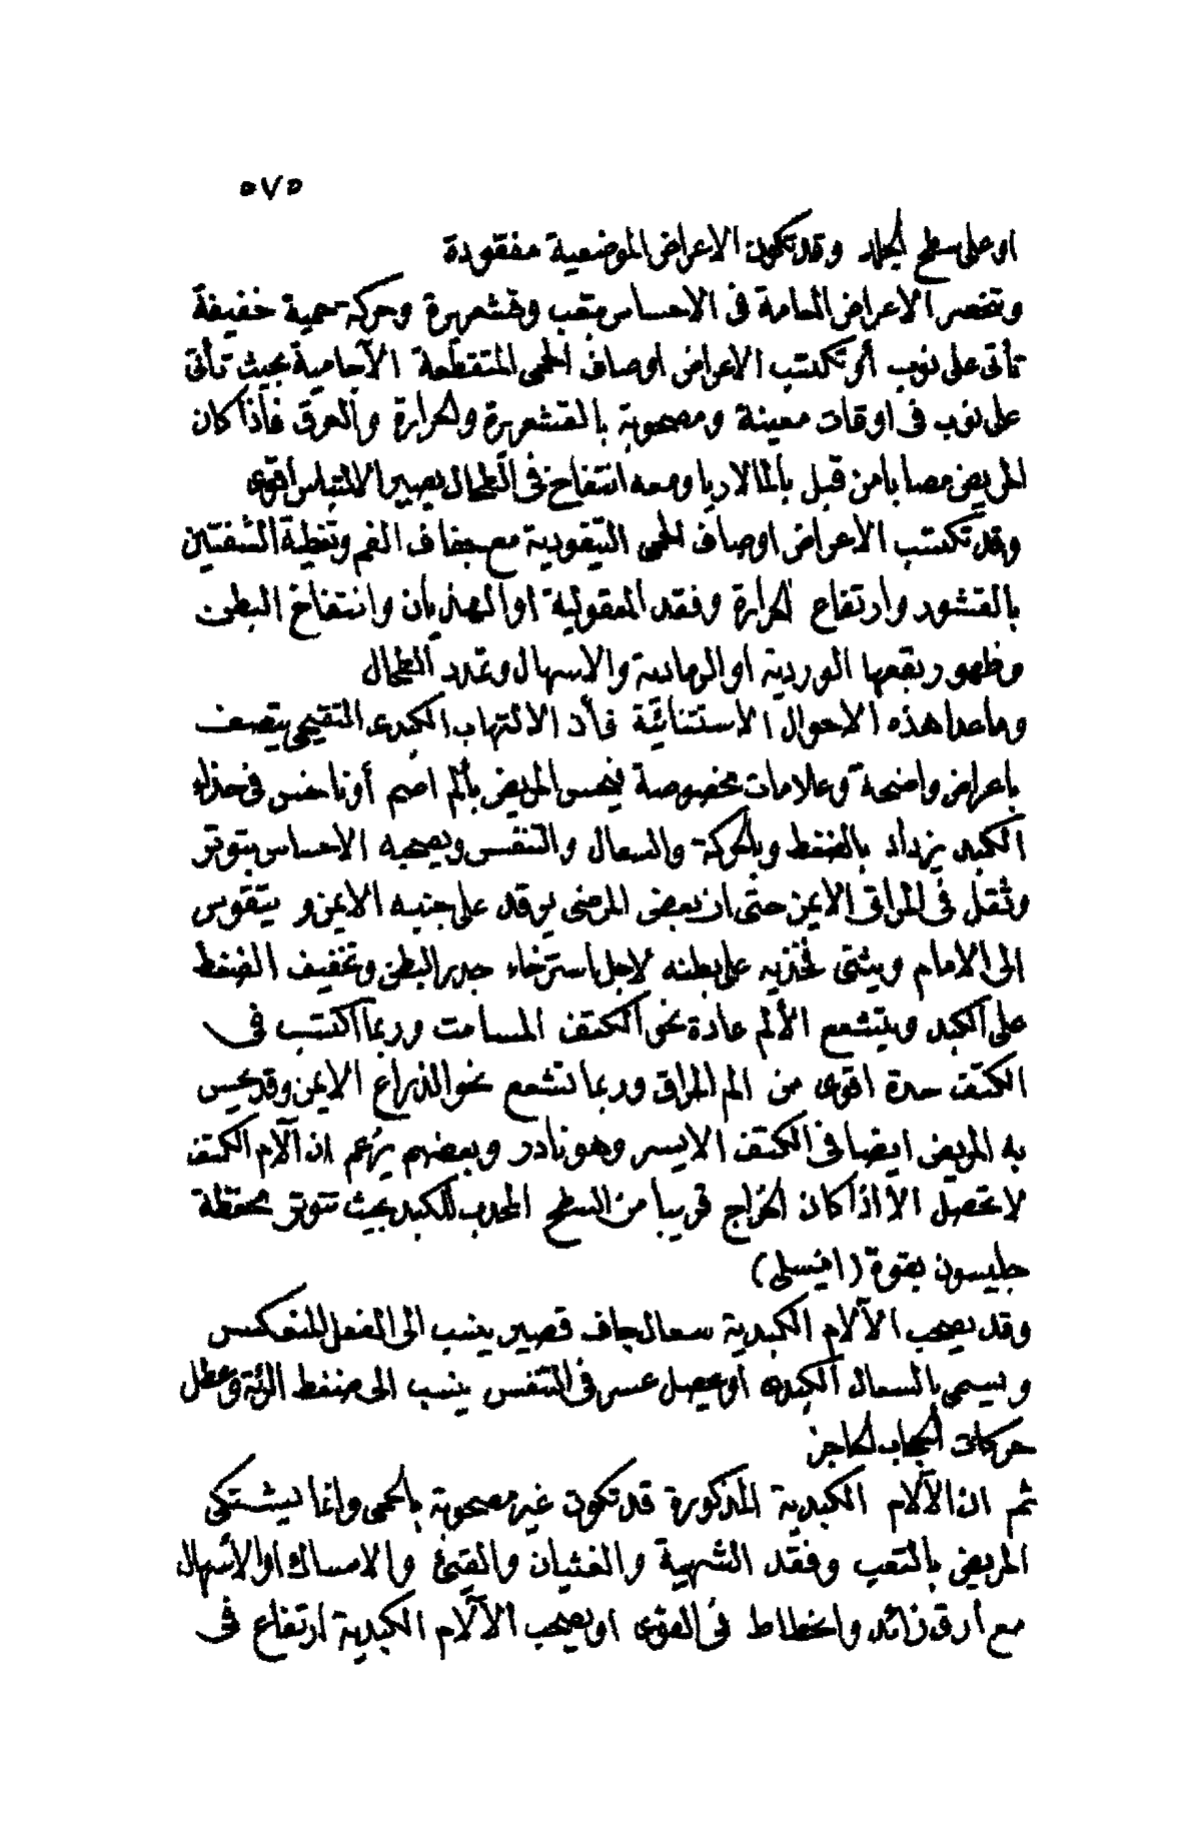 ٥٧٥
او على سطح الجلد وقد تكون الاعراض الموضعية مفقودة
وتنحصر الاعراض العامة فى الاحساس بتعب وقشعريرة وحركة حمية خفيفة
تأتى على نوب أو تكتسب الاعراض اوصاف الحمى المتقطعة الآجامية بحيث تأتى
على نوب فى اوقات معينة ومصحوبة بالقشعريرة والحرارة والعرق فاذا كان
المريض مصابا من قبل بالمالاريا ومعه انتفاخ فى الطحال يصير الالتباس أقوى
وقد تكتسب الاعراض اوصاف الحمى التيفودية مع جفاف الفم وتغطية الشفتين
بالقشور وارتفاع الحرارة وفقد المعقولية او الهذيان وانتفاخ البطن
وظهور بقعها الوردية او الرصاصية والاسهال وتمدد الطحال
وما عدا هذه الاحوال الاستثنائية فأن الالتهاب الكبدى التقيحى يتصف
باعراض واضحة وعلامات مخصوصة فيحس المريض بألم اصم أو ناخس فى حذاء
الكبد يزداد بالضغط وبالحركة والسعال والتنفس ويصحبه الاحساس بتوتر
وثقل فى المراق الايمن حتى ان بعض المرضى يرقد على جنبه الايمن و يتقوس
الى الامام ويثنى فخذيه على بطنه لاجل استرخاء جدر البطن وتخفيف الضغط
على الكبد ويتشعع الألم عادة نحو الكتف المسامت وربما اكتسب فى
الكتف شدة اقوى من الم المراق وربما تشعع نحو الذراع الايمن وقد يحس
به المريض ايضا فى الكتف الايسر وهو نادر وبعضهم يزعم ان آلام الكتف
لا تحصل الا اذا كان الخراج قريبا من السطح المحدب للكبد بحيث تتوتر محفظة
جليسون بقوة (انيسلى)
وقد يصحب الآلام الكبدية سعال جاف قصير ينسب الى الفعل المنعكس
ويسمى بالسعال الكبدى أو يحصل عسر فى التنفس ينسب الى ضغط الرئة وعطل
حركات الحجاب الحاجز
ثم ان الآلام الكبدية المذكورة قد تكون غير مصحوبة بالحمى وانما يشتكى
المريض بالتعب وفقد الشهية والغثيان والقىء والامساك او الأسهال
مع أرق زائد وانحطاط فى القوى او يصحب الآلام الكبدية ارتفاع فى